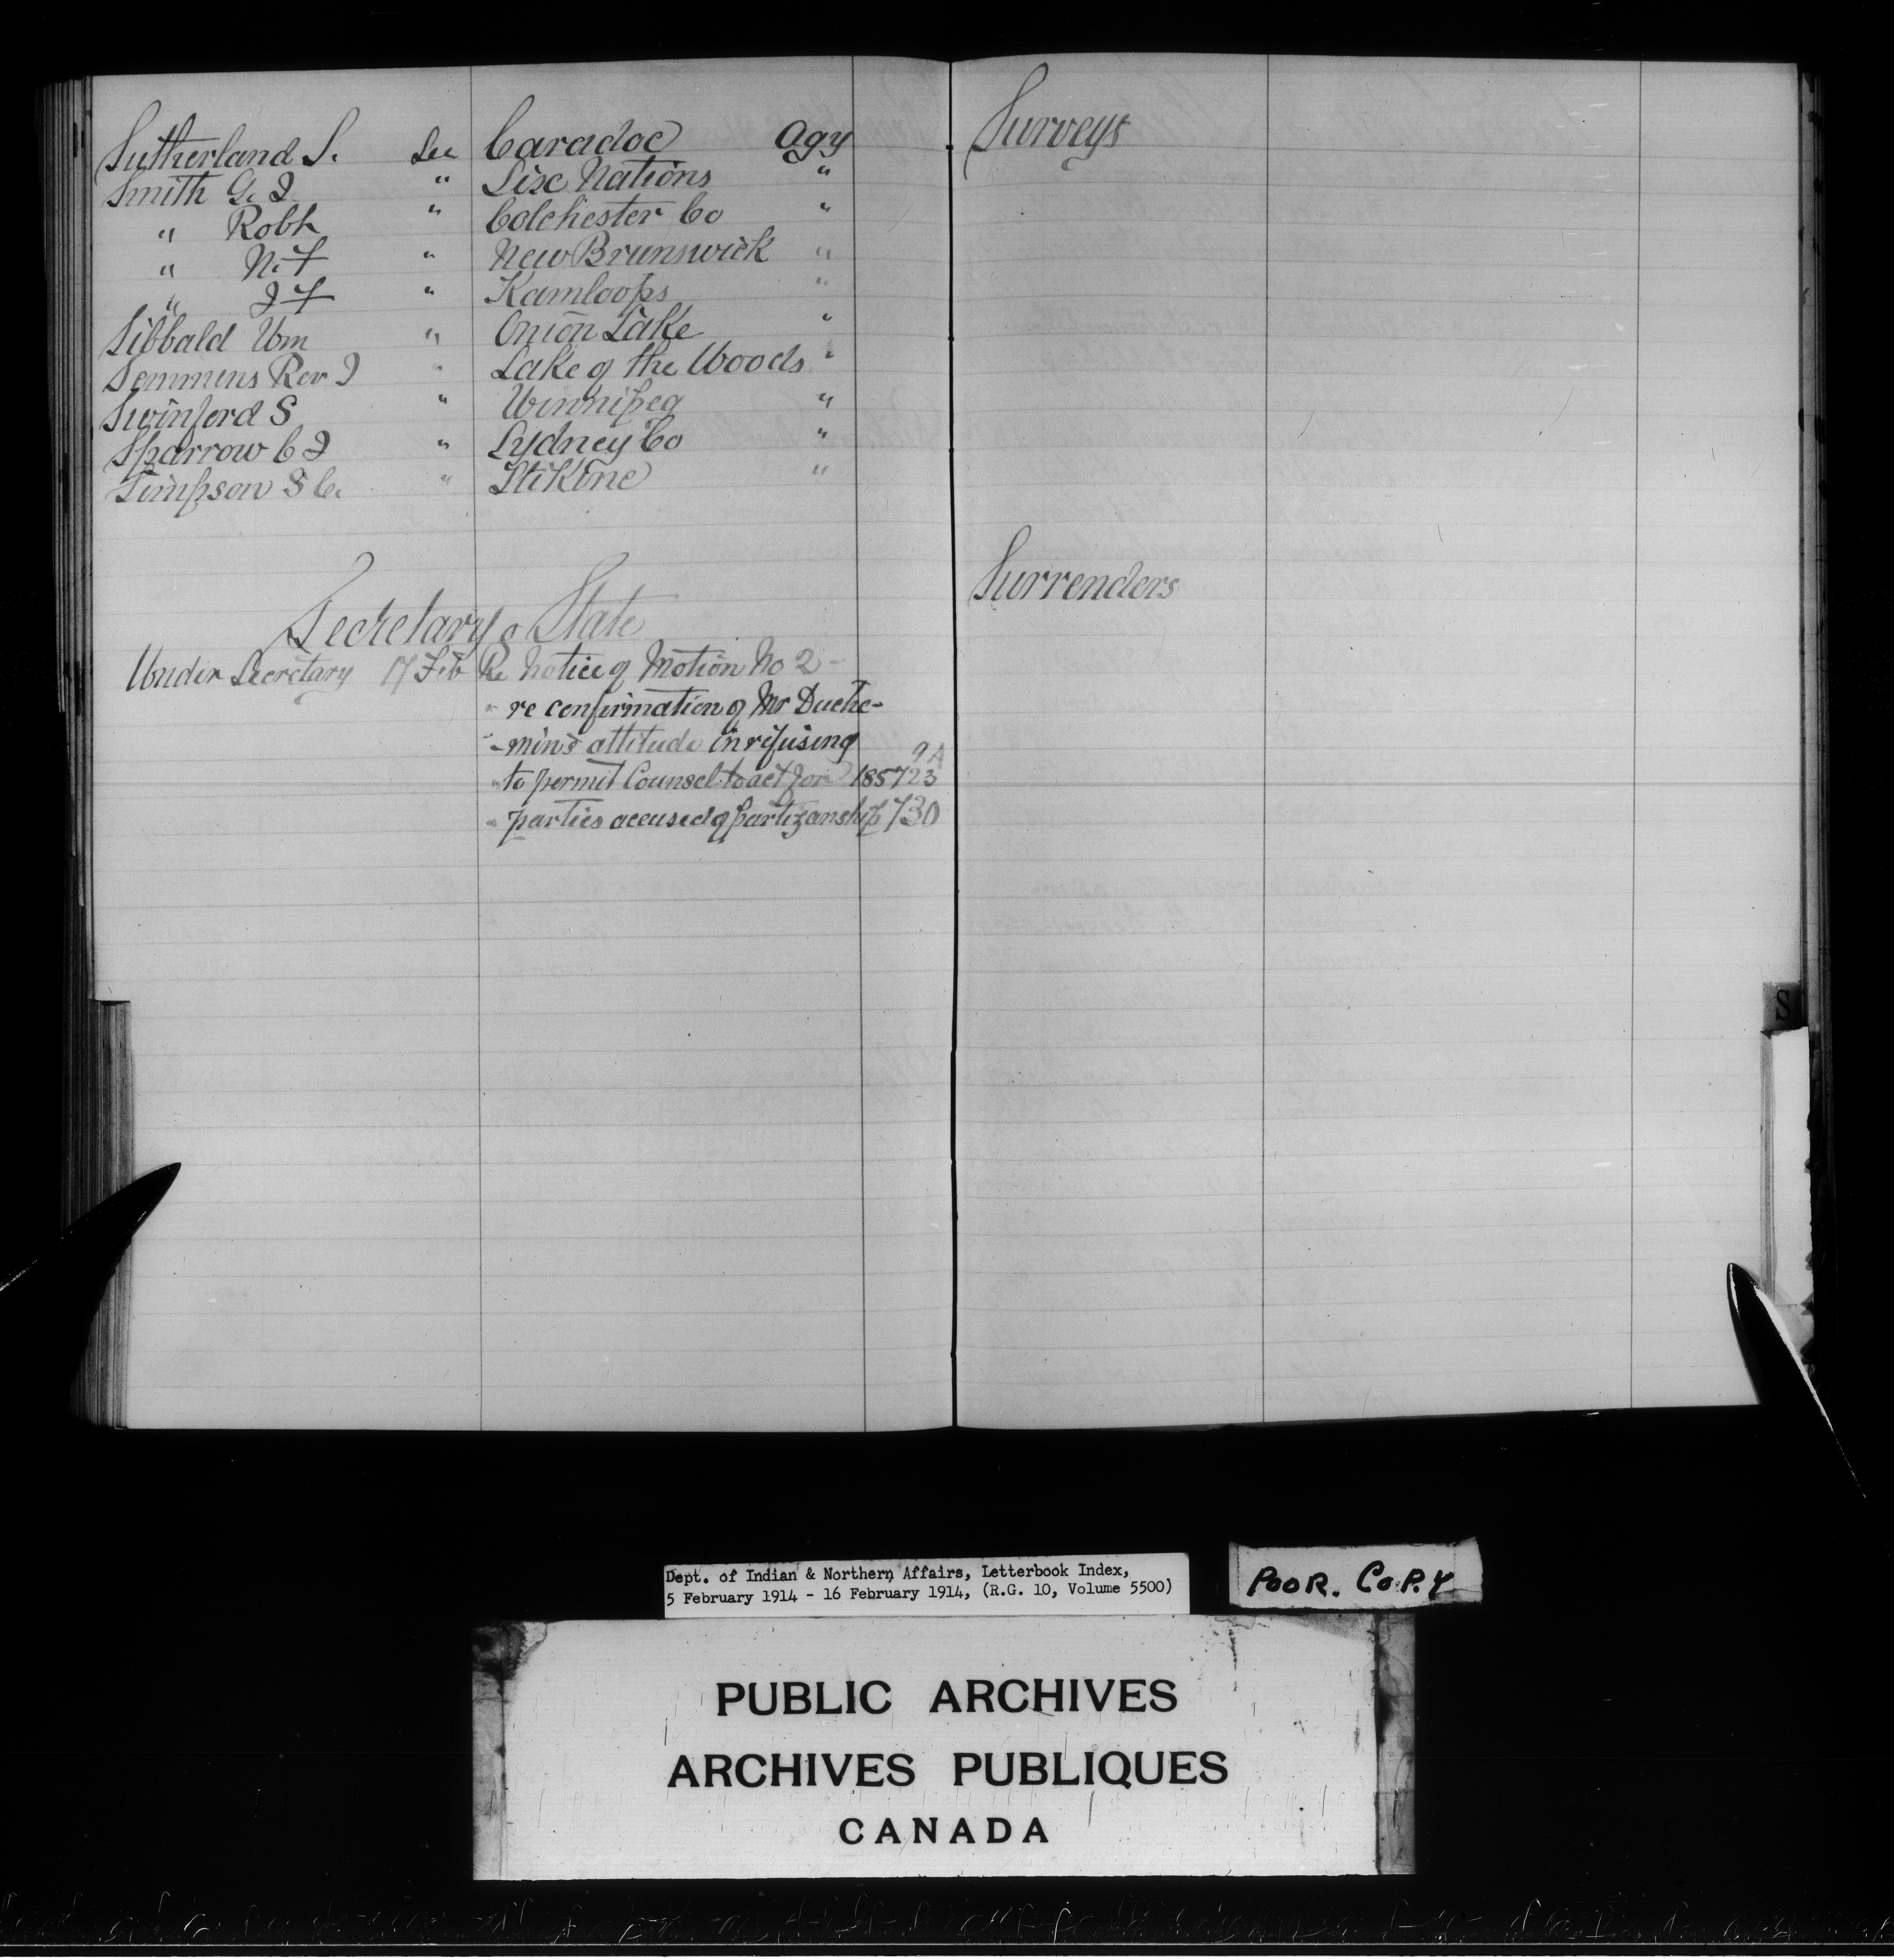 Sutherland S. See Caradoc Agy
Smith G. J. " Six Nations "
" Robt " Colchester Co "
" N. F " New Brunswick "
" J F " Kamloops "
Sibbald Wm " Onion Lake "
Semmens Rev J " Lake of the Woods "
Swinford S " Winnipeg "
Sparrow C J " Sydney Co "
Simpson S C. " Stikine "
Secretary of State
Under Secretary 17 Feb Re Notice of Motion No 2 -
" re confirmation of Mr Duche-
" -min's attitude in refusing 9A
" to permit Counsel to act for 185723
" parties accused of partizanship 730
Surveys
Surrenders
S
Dept. of Indian & Northern Affairs, Letterbook Index,
5 February 1914 - 16 February 1914, (R.G. 10, Volume 5500)
POOR. COPY
PUBLIC ARCHIVES
ARCHIVES PUBLIQUES
CANADA